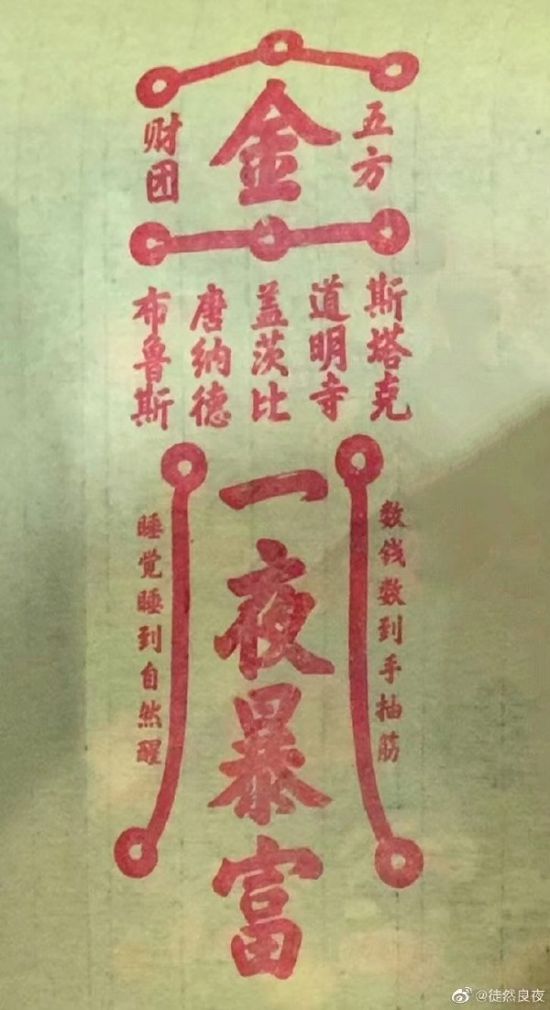 五方
金
财团
斯塔克
道明寺
盖茨比
唐纳德
布鲁斯
数钱数到手抽筋
一夜暴富
睡觉睡到自然醒
@徒然良夜